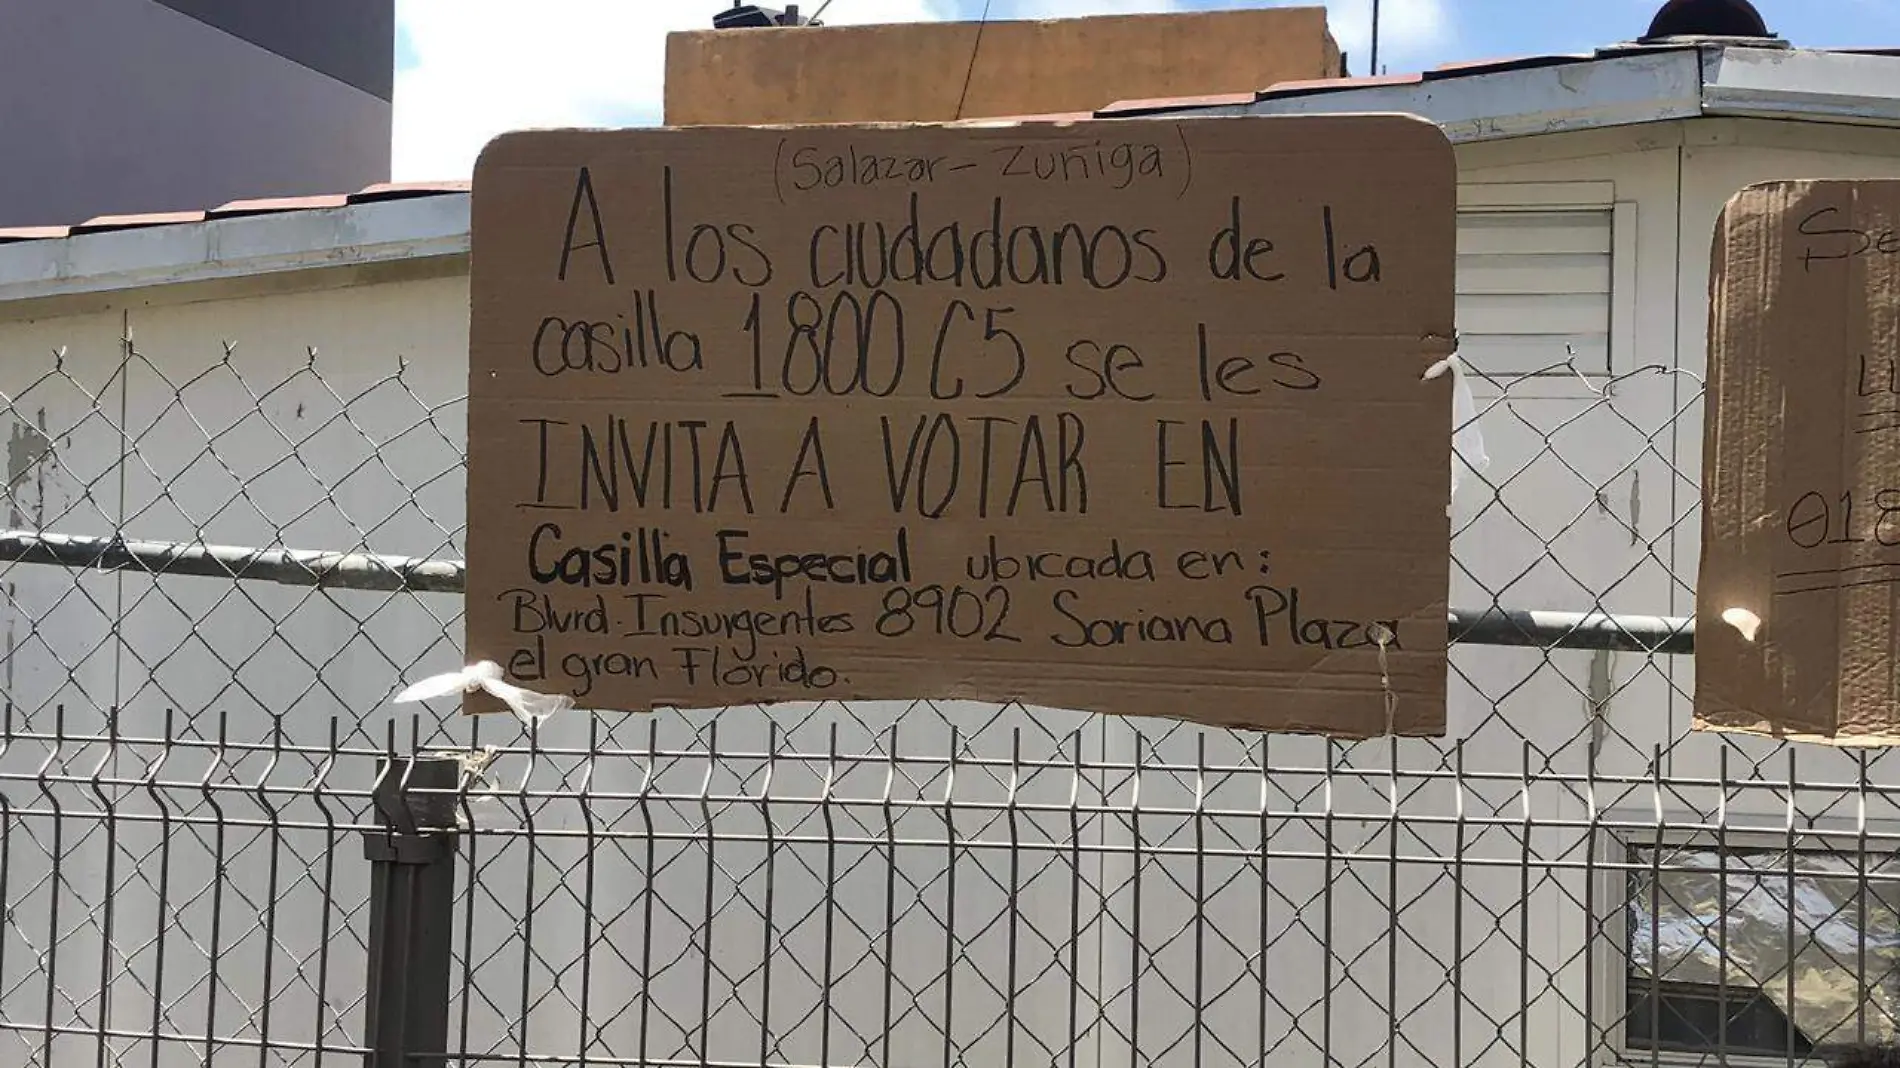 (Salazar-Zuñiga)
A los ciudadanos de la
casilla 1800 C5 se les
INVITA A VOTAR EN
Casilla Especial ubicada en:
Blvrd. Insurgentes 8902 Soriana Plaza
el gran Florido.
Se
018